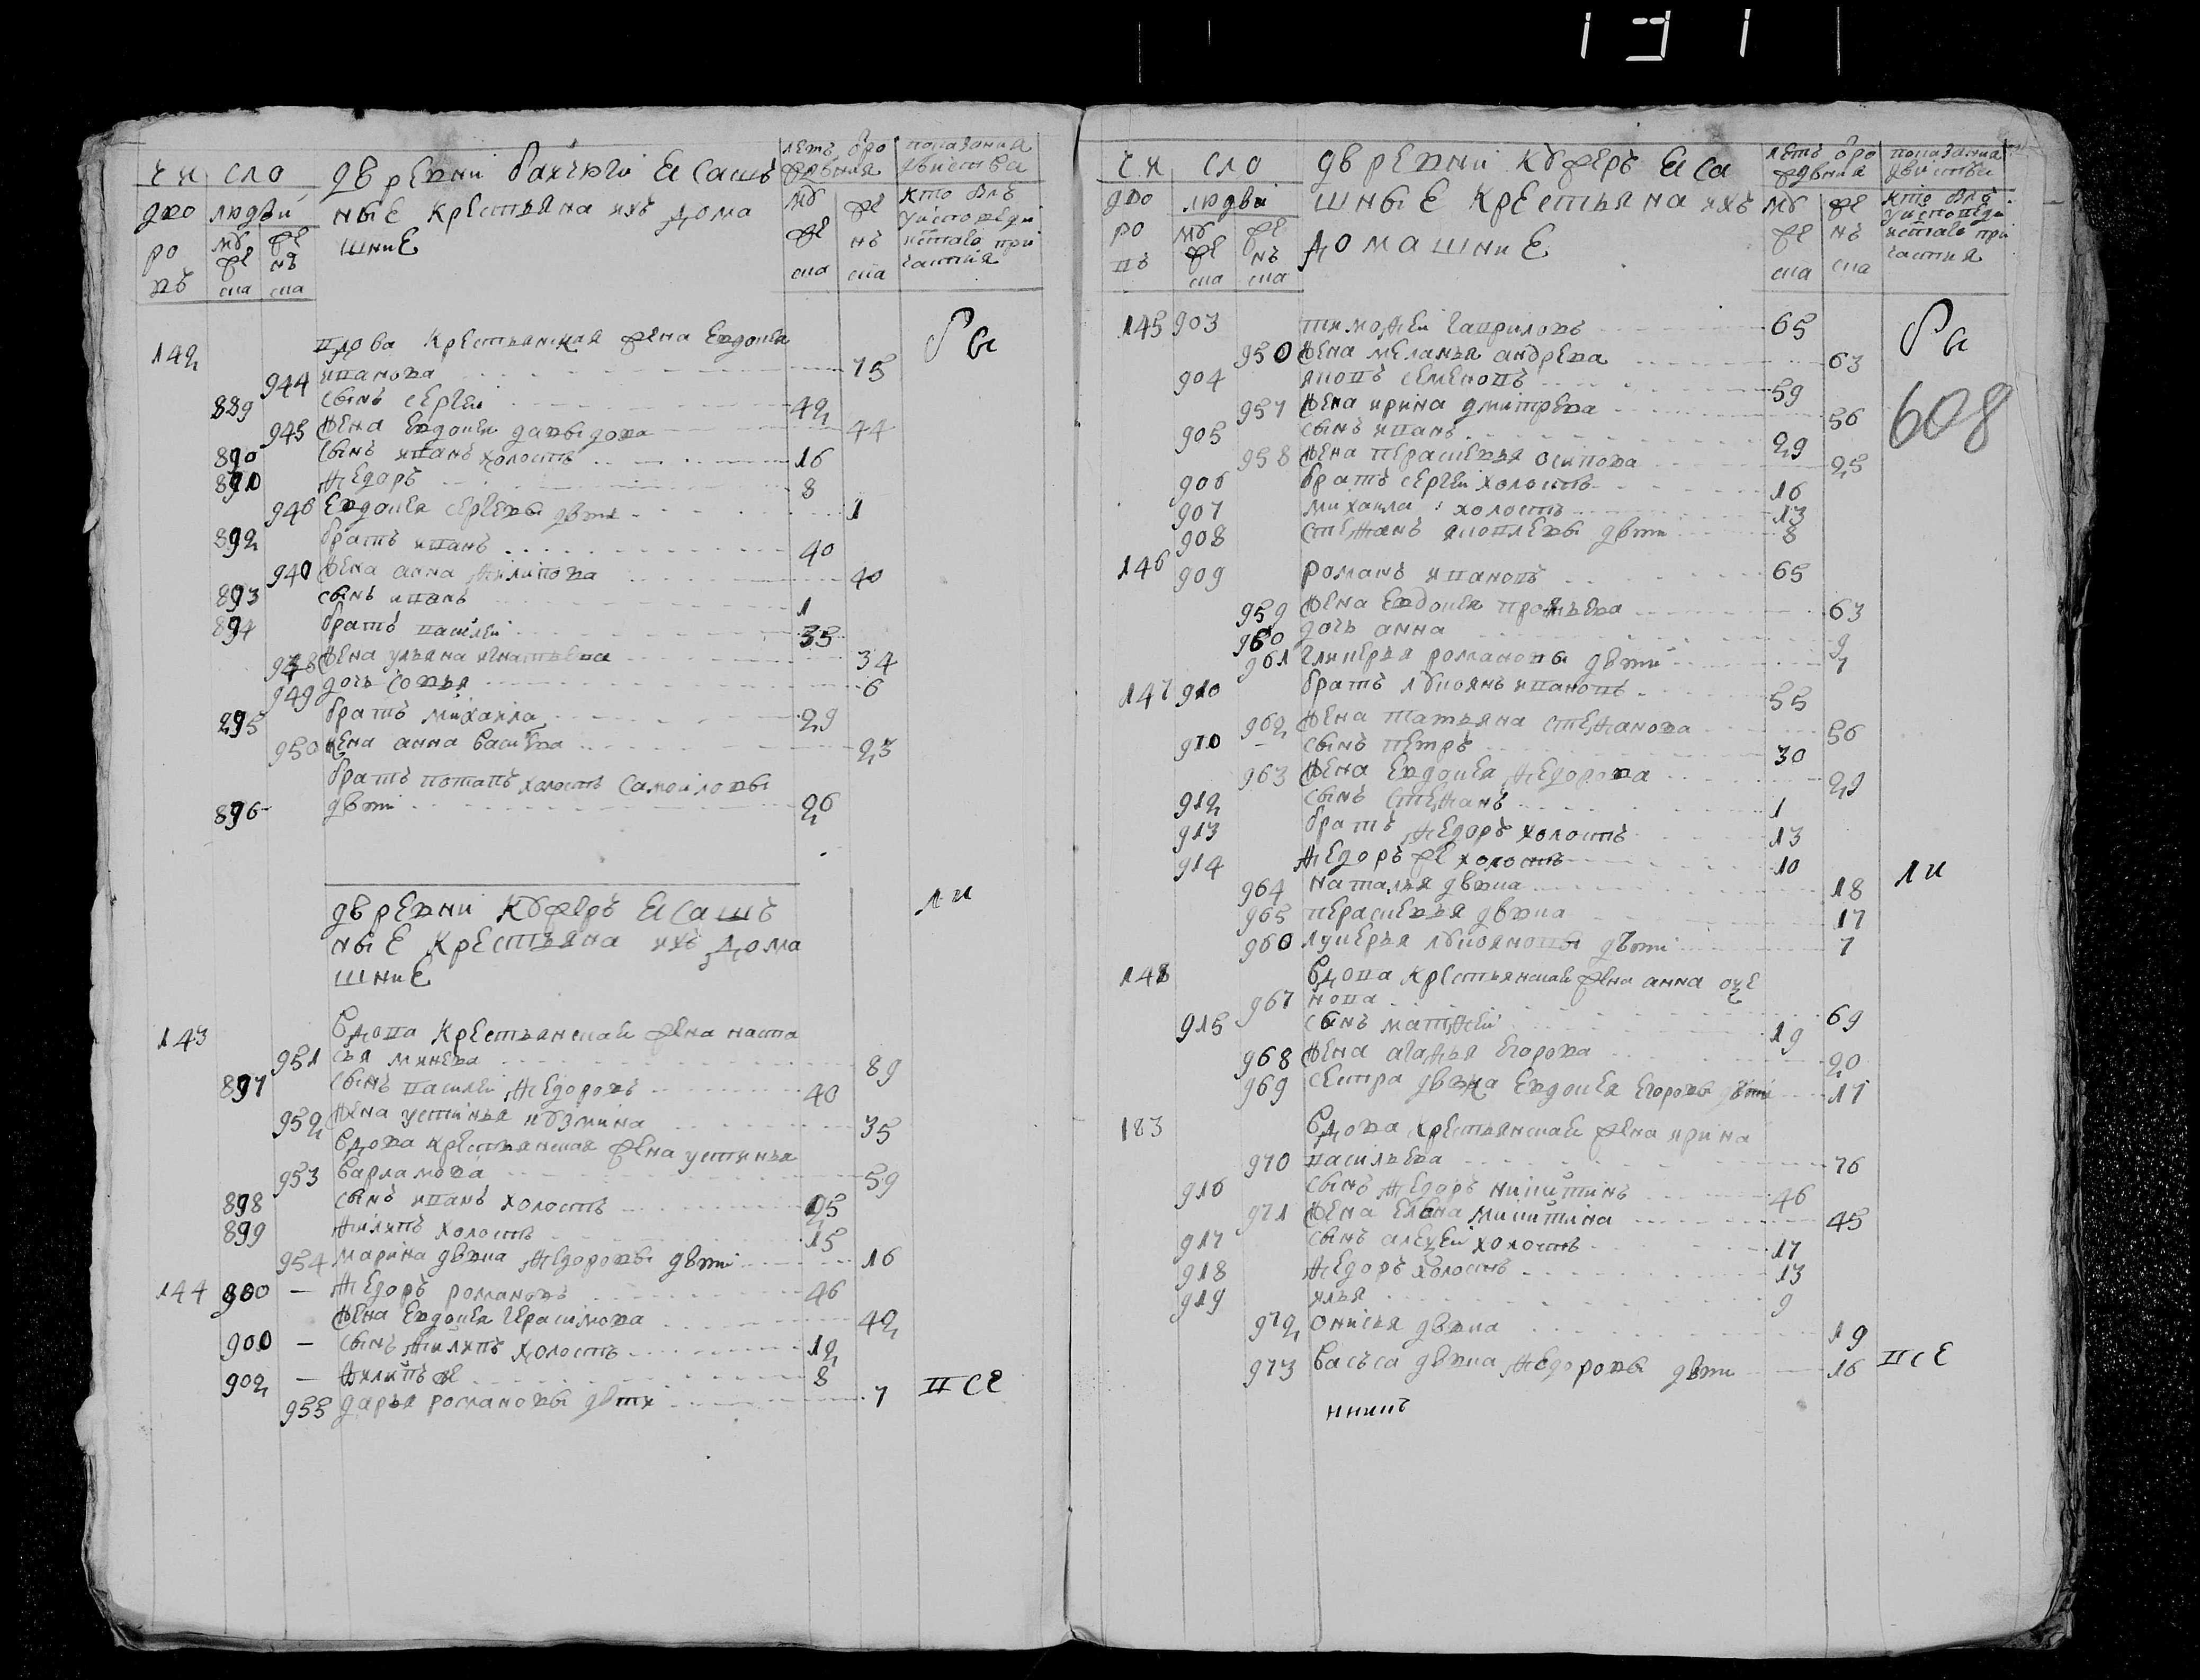 чи сло
дво людеи
ро мѹ же
въ же нъ
ска ска
дѣревни бахъюги Ясашъ
ные крестьяна ихъ дома
шние
летъ ѿро
жденія
мѹ же
же нъ
ска ска
показания
дѣиства
кто былъ
у исповеди
и святаго при
частия
142 вдова крестьянская жена Евдокея
944 иванова 75
889 сынъ сергеи 42
945 жена Евдокея давыдова 44
890 сынъ иванъ холостъ 16
890 ѳедоръ 8
946 Евдокея сергевы дѣти 1
892 братъ иванъ 40
940 жена анна ѳилипова 40
893 сынъ иванъ 1
894 братъ василеи 35
948 жена ульяна игнатьева 34
949 дочь совья 6
295 братъ михаила 29
950 жена анна васиева 23
братъ потапъ холостъ самоиловы
896 дѣти 26
бы
дѣревни кѹжеръ Ясашъ
ные крестьяна ихъ дома
шние
ли
143 вдова крестьянская жена наста
951 сья минева 89
897 сынъ василеи ѳедоровъ 40
952 жена устинья кѹзмина 35
вдова крестьянская жена устинья
953 варламова 59
898 сынъ иванъ холостъ 25
899 ѳилипъ холостъ 15
954 марина дѣвка ѳедоровы дѣти 16
144 900 — ѳедоръ романовъ 46
жена Евдокея герасимова 42
900 — сынъ ѳилипъ холостъ 12
902 — ѳилипъ же 8
955 дарья романовы дѣти 7
все
чи сло
дво людеи
ро мѹ же
въ же нъ
ска ска
дѣревни кѹжеръ Яса
шные крестьяна ихъ
домашние
летъ ѿро
жденія
мѹ же
же нъ
ска ска
показания
дѣиства
кто былъ
у исповеди
и святаго при
частия
145 903 тимоѳеи гавриловъ 65
950 жена меланья андрева 63
904 яковъ семеновъ 59
957 жена ирина дмитрева 56
905 сынъ иванъ 29
958 жена перасковья осипова 25
906 братъ сергеи холостъ 16
907 михаила холостъ 13
908 стеѳанъ яковлевы дѣти 8
бы
608
146 909 романъ ивановъ 65
959 жена Евдокея проѳьева 63
960 дочь анна 9
961 гликерья романовы дѣти 7
147 910 братъ лѹкоянъ ивановъ 55
962 жена татьяна стеѳанова 56
910 — сынъ петръ 30
963 жена Евдокея ѳедорова 29
912 сынъ стеѳанъ 1
913 братъ ѳедоръ холостъ 13
914 ѳедоръ же холостъ 10
964 наталья дѣвка 18
965 перасковья дѣвка 17
960 лукерья лѹкояновы дѣти 7
ли
148 вдова крестьянская жена анна
967 нова 69
915 сынъ матѳеи 19
968 жена агаѳья егорова 20
969 сестра дѣвка Евдокея егоровы дѣти 17
183 вдова крестьянская жена ирина
970 васильева 76
916 сынъ ѳедоръ никитинъ 46
971 жена елена микитина 45
917 сынъ алеѯеи холостъ 17
918 ѳедоръ холостъ 13
919 илья 9
972 онисья дѣвка 19
973 васъса дѣвка ѳедоровы дѣти 16
все